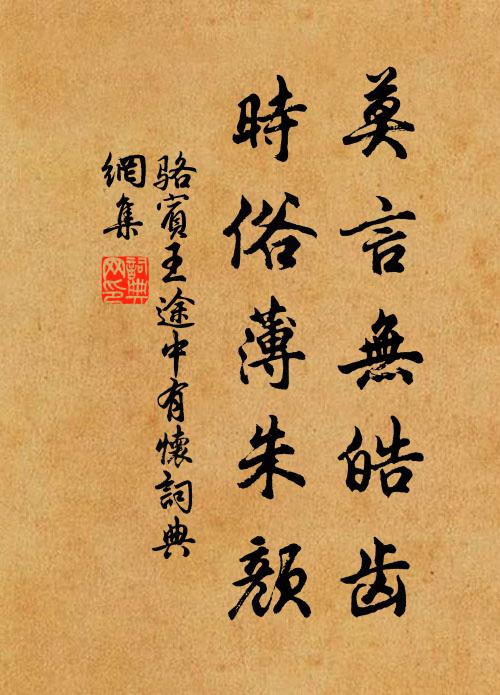 莫言無皓齒
時俗薄朱顏
駱賓王途中有懷詞典
網集
詞典
网印